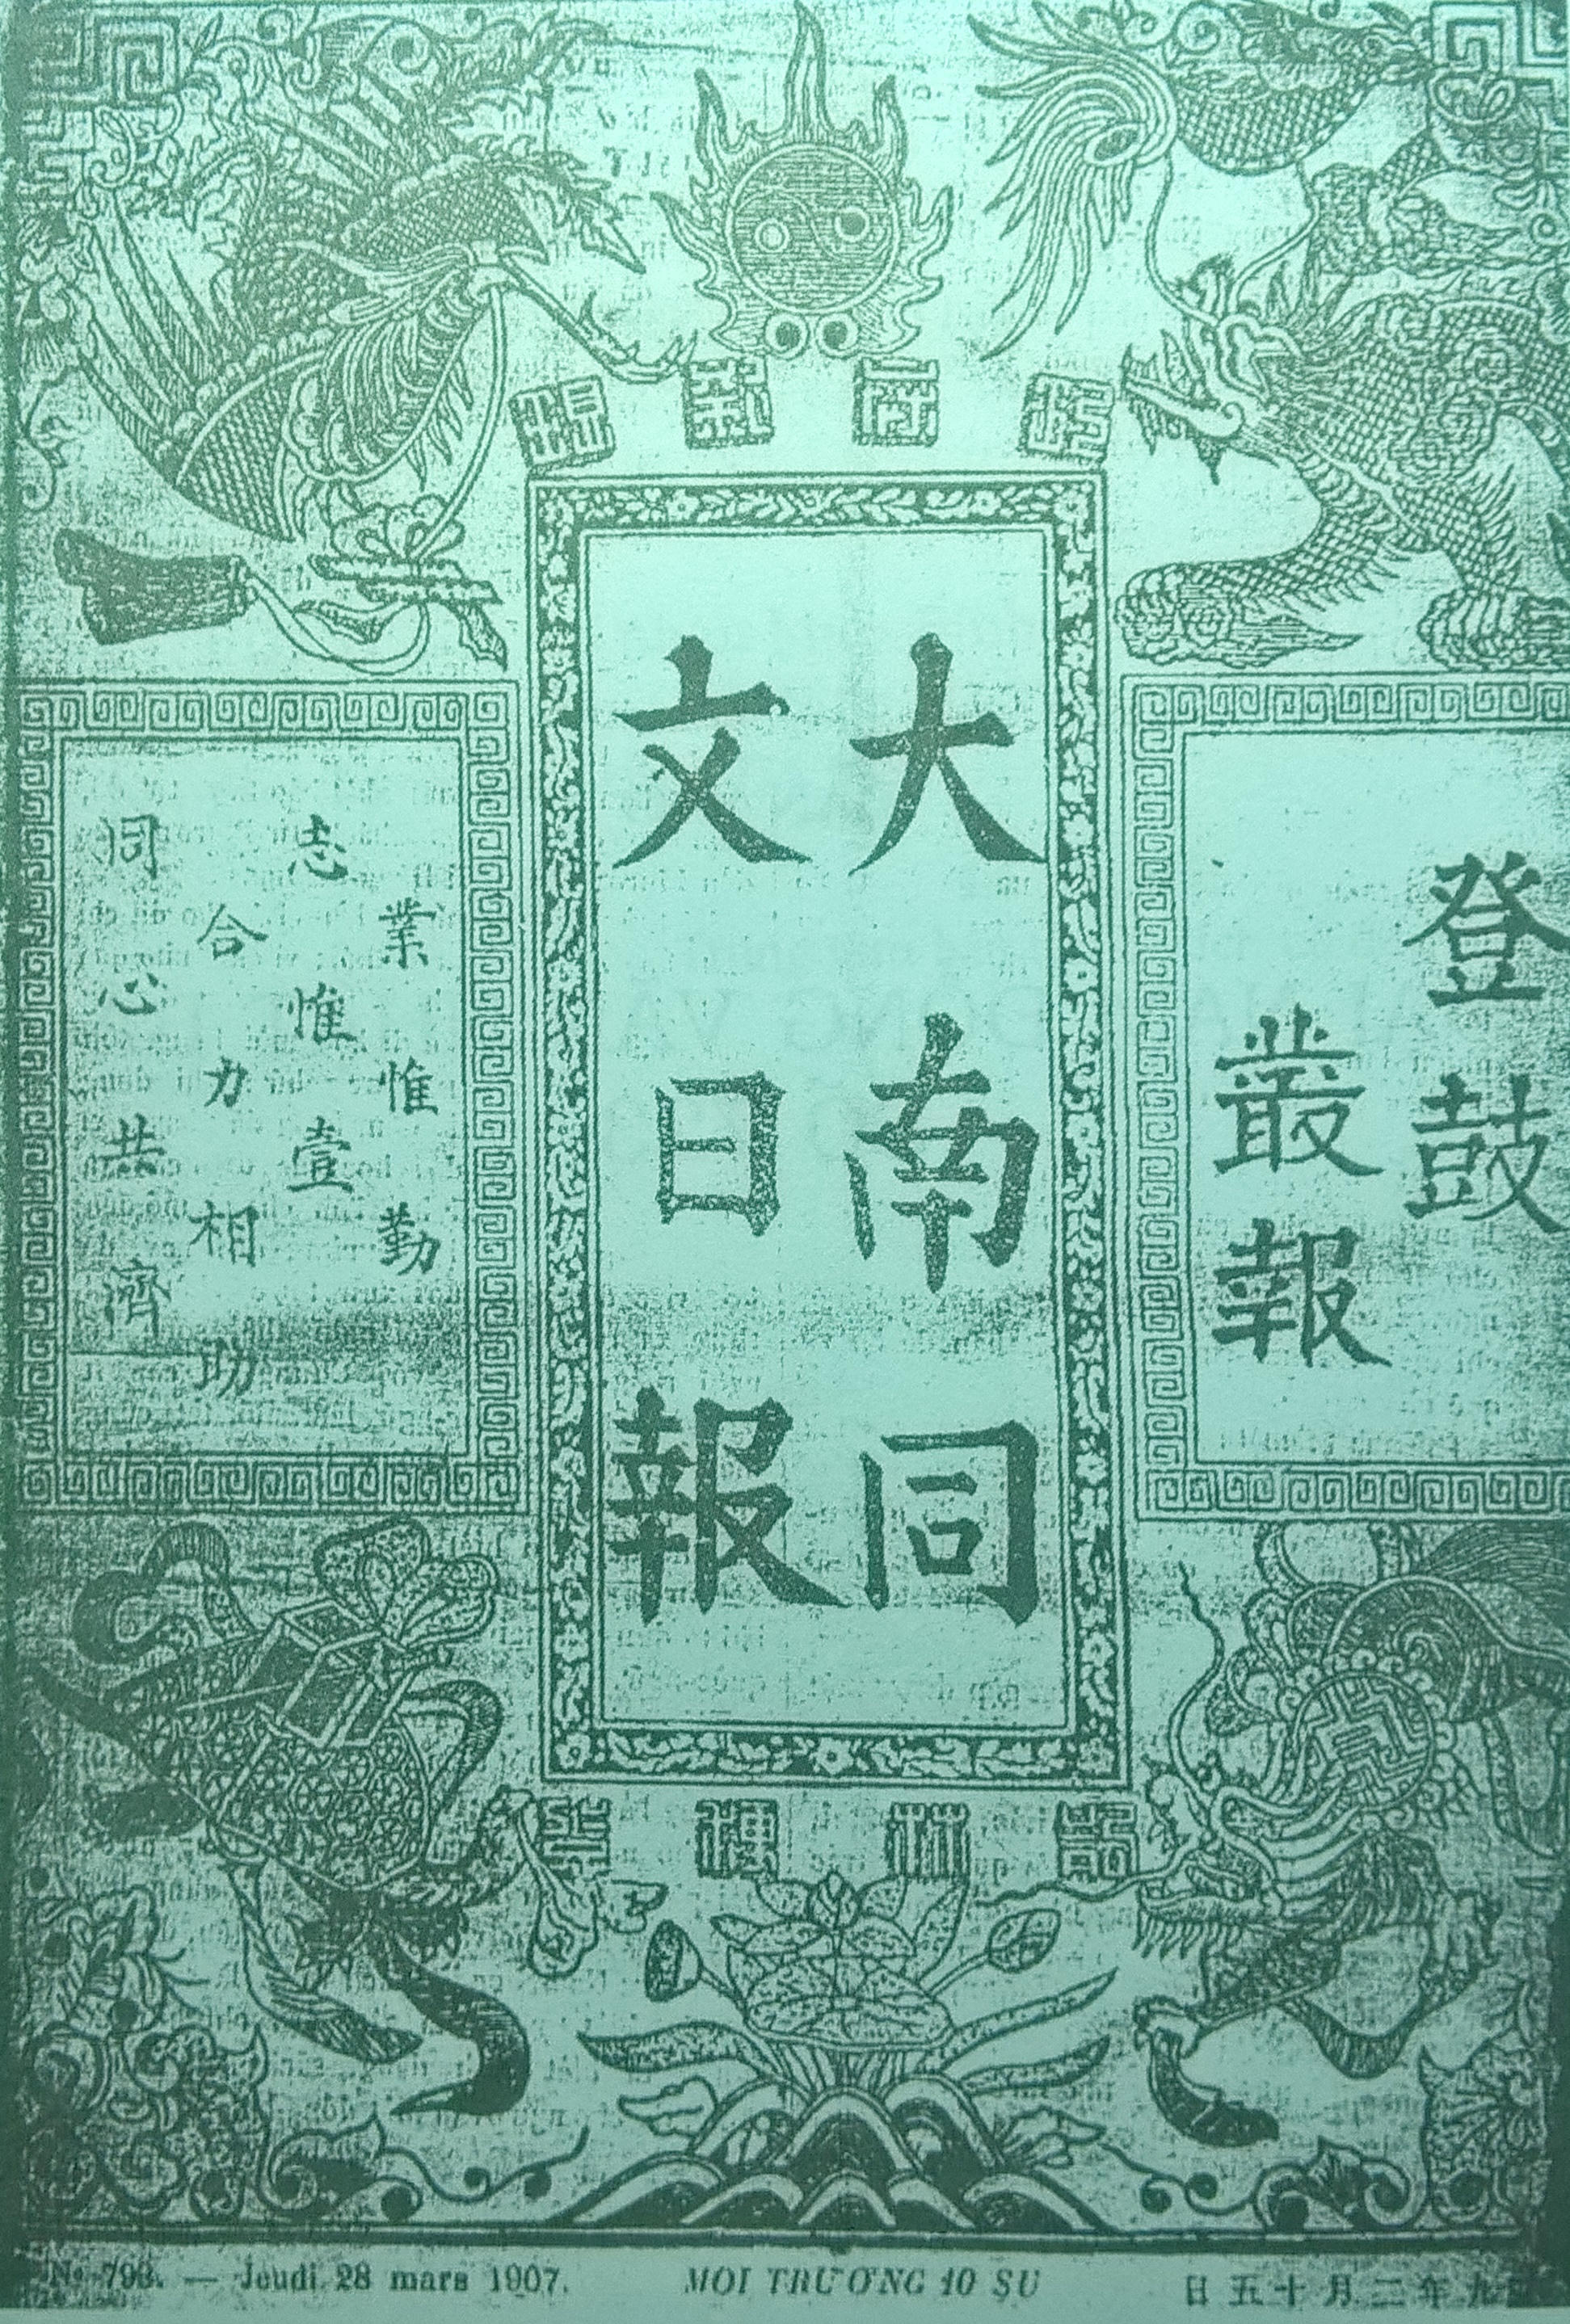 登鼓
叢報
大南同
文日報
業惟勤
志惟壹
合力相助
同心共濟
No 793. — Jeudi 28 mars 1907.
MOI TRƯƠNG 10 SU
九年二月十五日